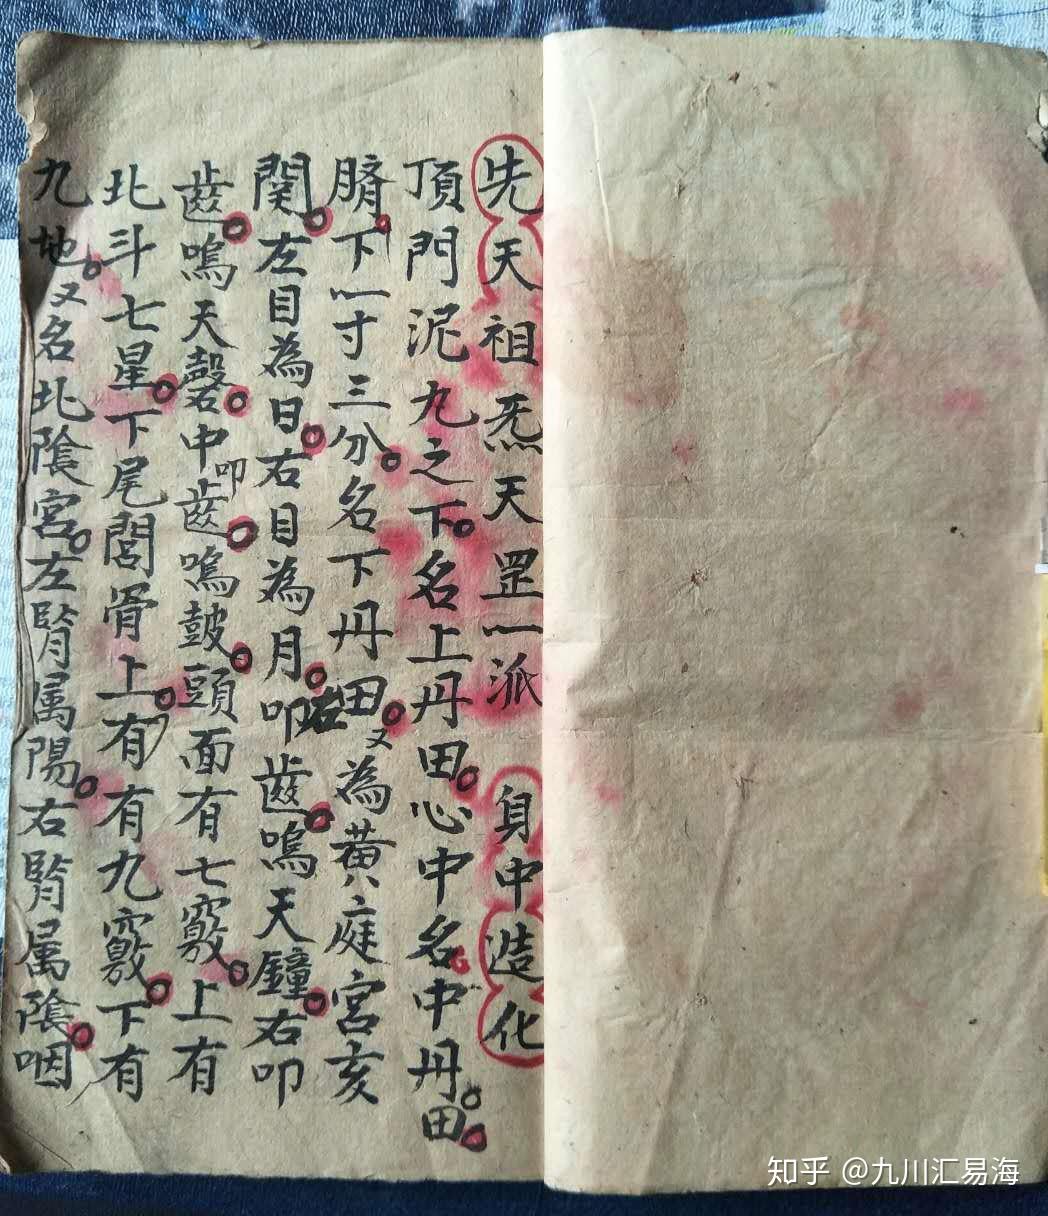 先天祖炁天罡一派　身中造化
頂門泥九之下。名上丹田。心中名中丹田。
臍。下一寸三分。名下丹田。又為黃庭宮亥
関。左目為日。右目為月。叩齒鳴天鐘。右叩
齒。鳴天磬。中叩齒。鳴鼓。頭面有七竅。上有
北斗七星。下尾閭骨上。有有九竅。下有
九地。又名北陰宮。左腎属陽。右腎属陰。咽
知乎 @九川汇易海